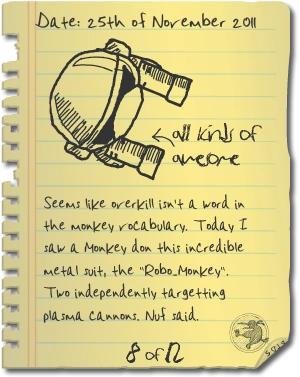 Date: 25th of November 2011
all kinds of
awesome
Seems like overkill isn't a word in
the monkey vocabulary. Today I
saw a Monkey don this incredible
metal suit, the "Robo_Monkey".
Two independently targetting
plasma cannons. Nuf said.
8 of 12